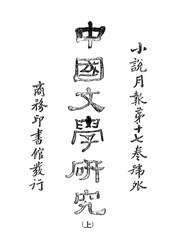 小說月報第十七卷號外
中國文學研究
(上)
商務印書館發行